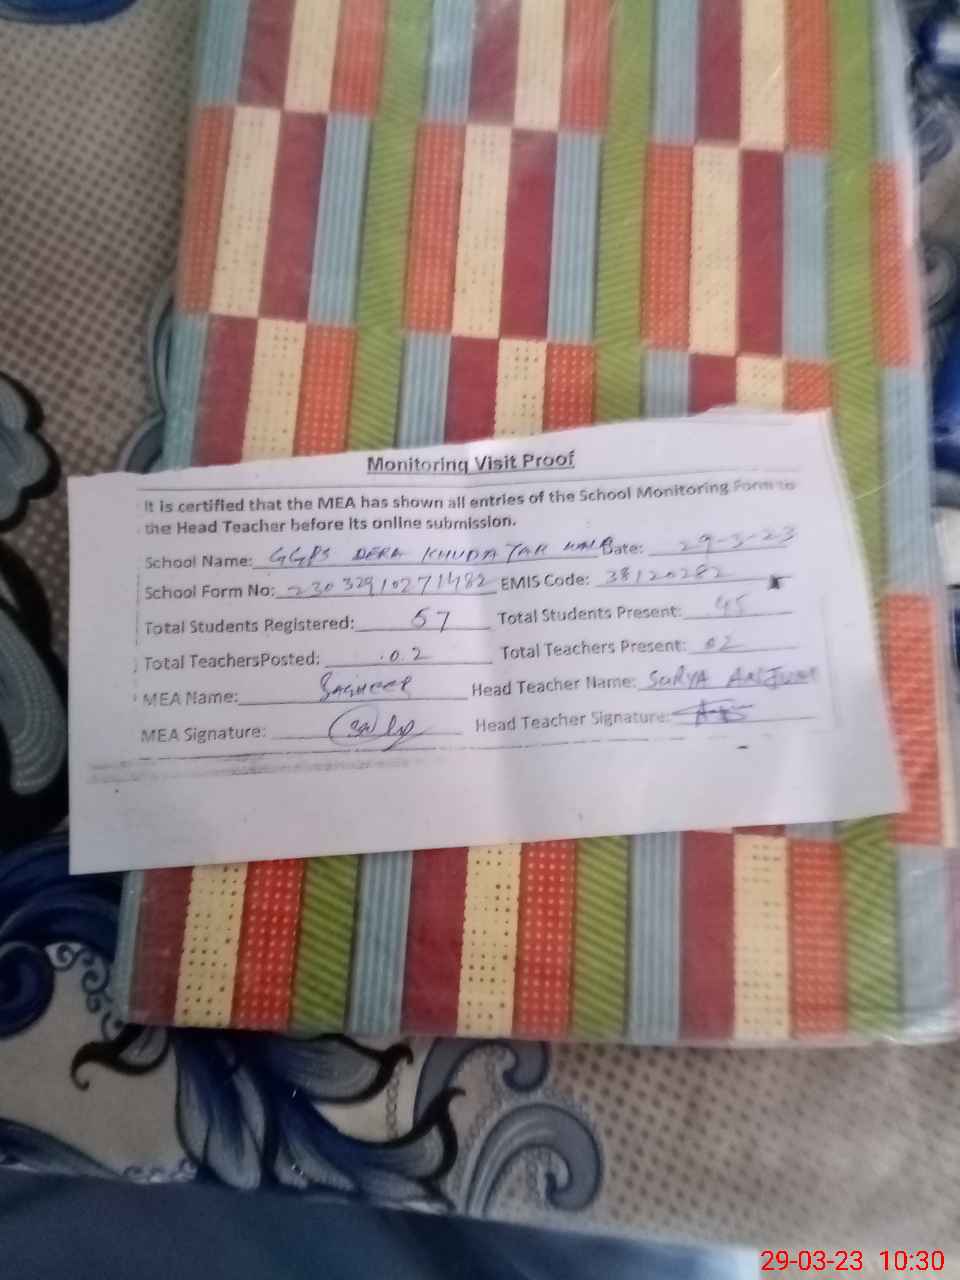 Monitoring Visit Proof
It is certified that the MEA has shown all entries of the School Monitoring Form to
the Head Teacher before its online submission.
School Name: GGPS DERA KHUDA YAR Date: 29-3-23
School Form No: 23032910271482 EMIS Code: 38120282
Total Students Registered: 57 Total Students Present: 45
Total TeachersPosted: .0.2 Total Teachers Present: 02
MEA Name: Head Teacher Name: SURYA ANJUM
MEA Signature: Head Teacher Signature:
29-03-23 10:30